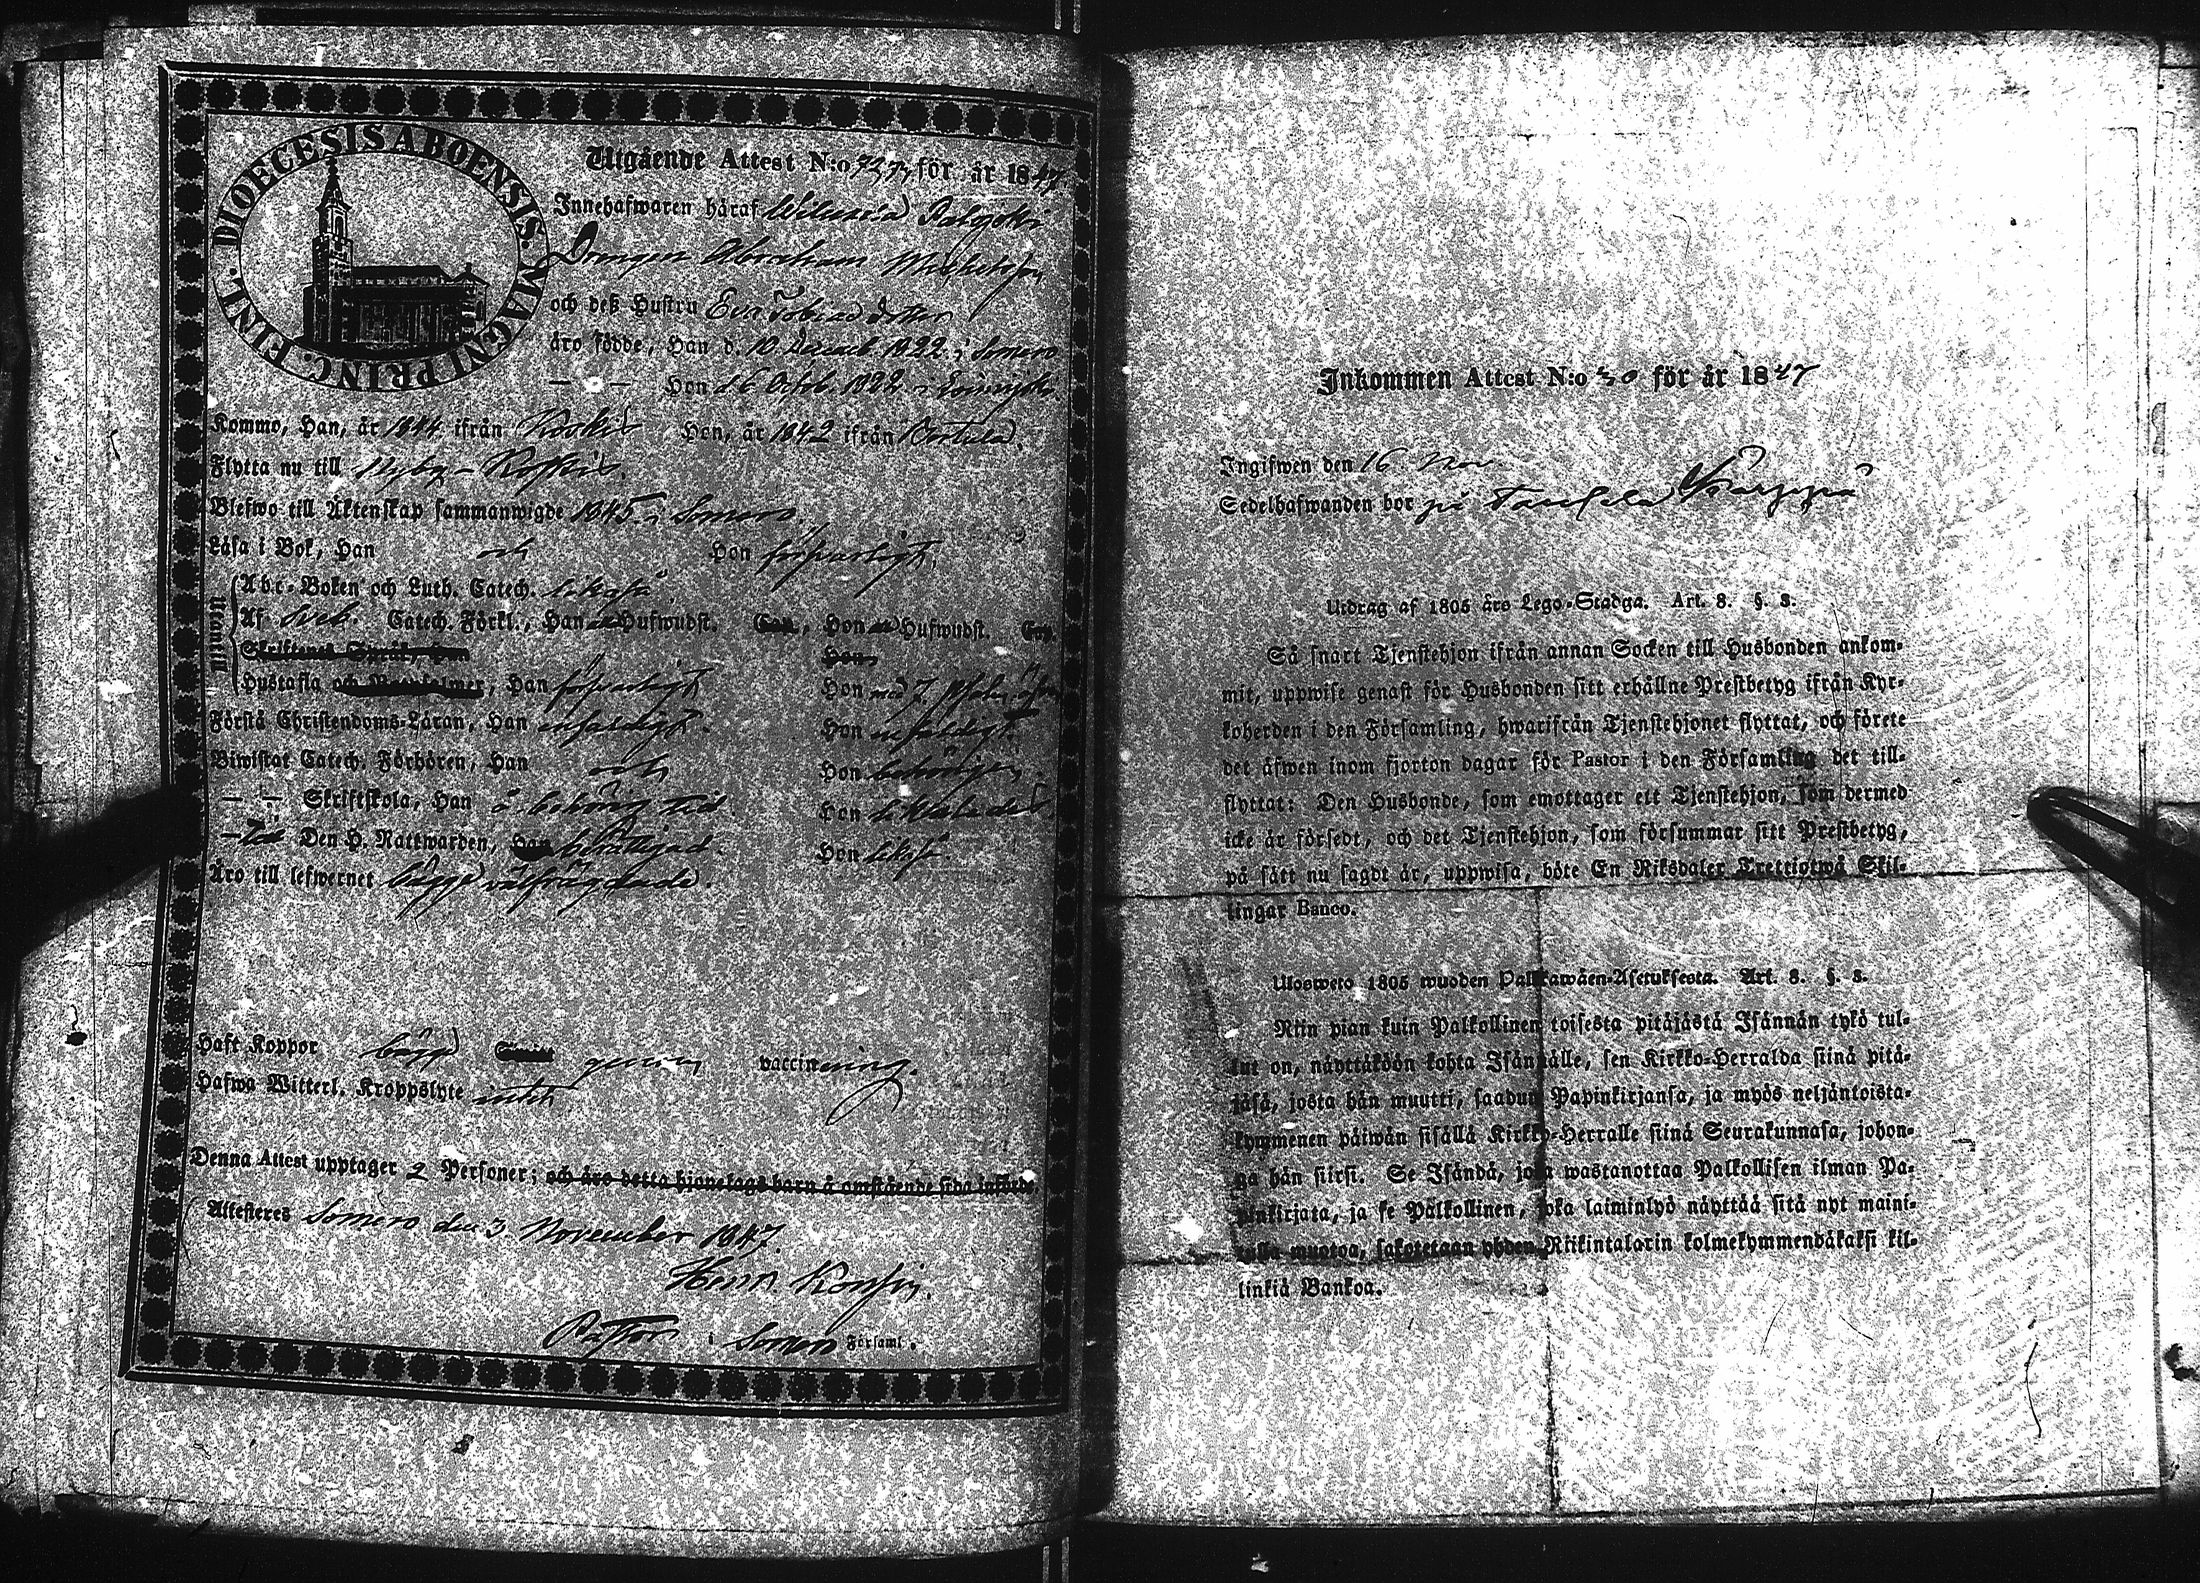 DIOECESIS ABOENSIS. MAGNI PRINC. FINL.
Utgående Attest N:o för år 1847.
Innehafwaren häraf
Drängen Abraham Michelsson
och deß Hustru Eva Tobiasdotter
äro födde, Han d. 10 Decemb 1822 i Somero
— — Hon d. 6 Octob. 1822 i
Kommo, Han, år 1844 ifrån Koskis Hon, år 1842 ifrån
Flytta nu till Nyby - Koskis.
Blefwo till Äktenskap sammanwigde 1845 i Somero.
Läsa i Bok, Han och Hon försvarligt.
Utantill
Abc-Boken och Luth. Catech. likaså
Af Sveb. Catech. Förkl., Han Hufwudst. , Hon Hufwudst.
Skriftenes Språk, Han Hon
Hustafla och Botpsalmer, Han försvarligt Hon med 7
Förstå Christendoms-Läran, Han enfaldigt. Hon enfaldigt.
Biwistat Catech. Förhören, Han och Hon behörigen.
— — Skriftskola, Han å behörig tid. Hon likaledes
— Den H. Nattwarden, Han Hon likaså.
Äro till lefwernet bägge välfrägdade.
Haft Koppor bägge genom vaccinering.
Hafwa Witterl. Kroppslyte intet
Denna Attest upptager 2 Personer; och äro detta hjonelags barn å omstående sida införde.
Attesteres Somero den 3. November 1847.
Henr.
Pastor i Somero Församl.
Inkommen Attest N:o 30 för år 1847
Ingifwen den 16 Nov.
Sedelhafwanden bor på
Utdrag af 1805 års Lego-Stadga. Art. 8. §. 3.
Så snart Tjenstehjon ifrån annan Socken till Husbonden ankom-
mit, uppwise genast för Husbonden sitt erhållne Prestbetyg ifrån Kyr-
koherden i den Församling, hwarifrån Tjenstehjonet flyttat, och förete
det äfwen inom fjorton dagar för Pastor i den Församling det till-
flyttat: Den Husbonde, som emottager ett Tjenstehjon, som dermed
icke är försedt, och det Tjenstehjon, som försummar sitt Prestbetyg,
på sätt nu sagdt är, uppwisa, böte En Riksdaler Trettiotwå Skil-
lingar Banco.
Ulosweto 1805 wuoden Palkkawäen-Asetuksesta. Art. 8. §. 3.
Niin pian kuin Palkollinen toisesta pitäjästä Isännän tykö tul-
lut on, näyttäköön kohta Isännälle, sen Kirkko-Herralda siinä pitä-
jäsä, josta hän muutti, saadun Papinkirjansa, ja myös neljäntoista-
kymmenen päiwän sisällä Kirkko-Herralle siinä Seurakunnasa, johon-
ga hän siirsi. Se Isändä, joka wastanottaa Palkollisen ilman Pa-
pinkirjata, ja se Palkollinen, joka laiminlyö näyttää sitä nyt maini-
tulla muotoa, sakotetaan yhden Riikintalarin kolmekymmendäkaksi kil-
linkiä Bankoa.